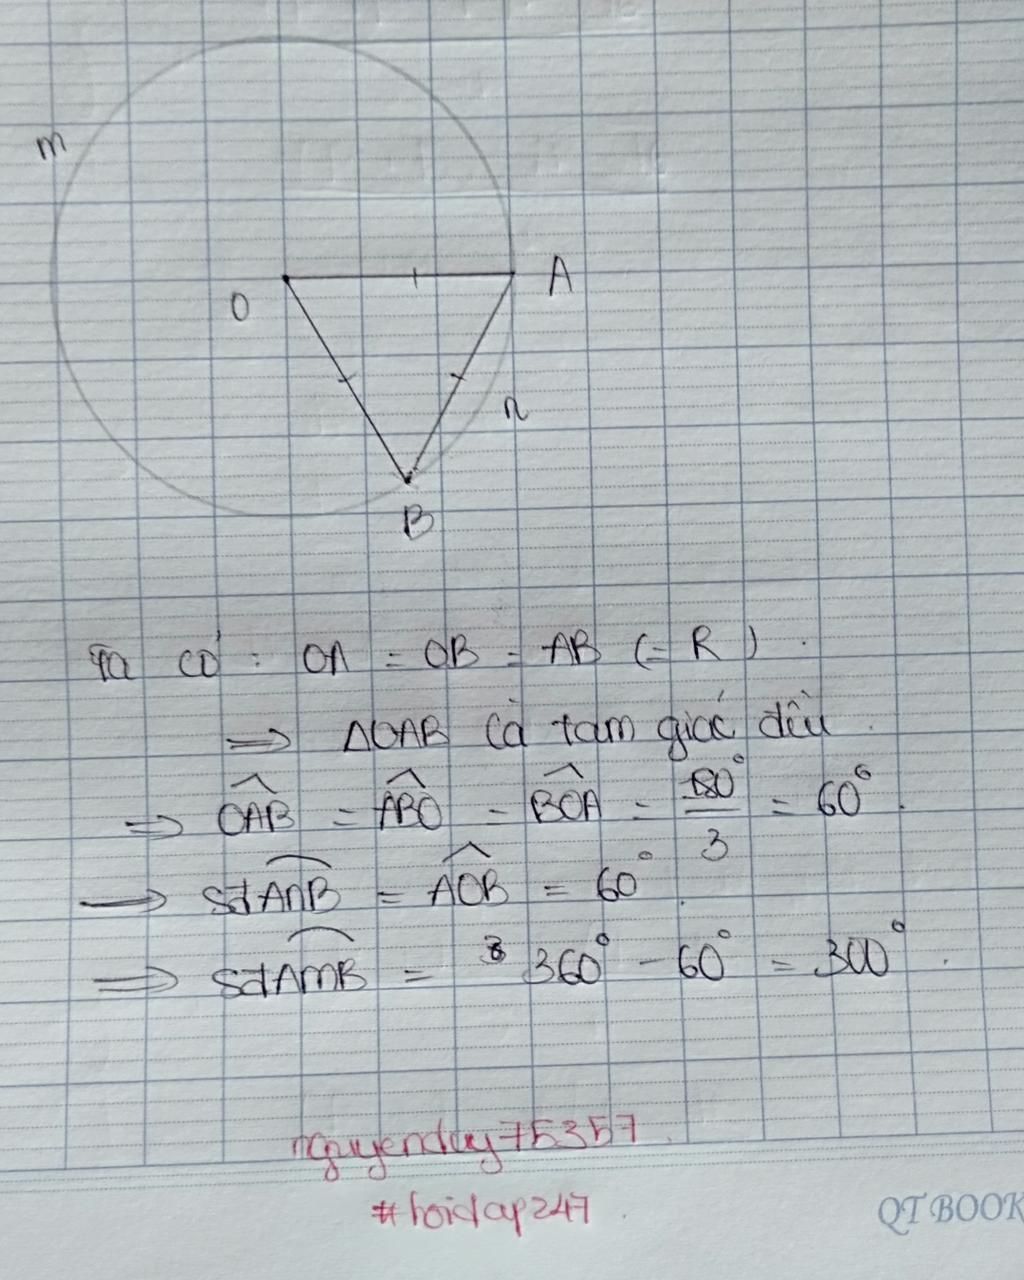 m
O
A
n
B
Ta có : OA = OB = AB (= R) .
=> ΔOAB là tam giác đều .
=> \widehat{OAB} = \widehat{ABO} = \widehat{BOA} = \frac{180°}{3} = 60° .
=> sđ\overset{\frown}{AnB} = \widehat{AOB} = 60° .
=> sđ\overset{\frown}{AmB} = 360° - 60° = 300° .
nguyenduy75357
#hoidap247
QT BOOK